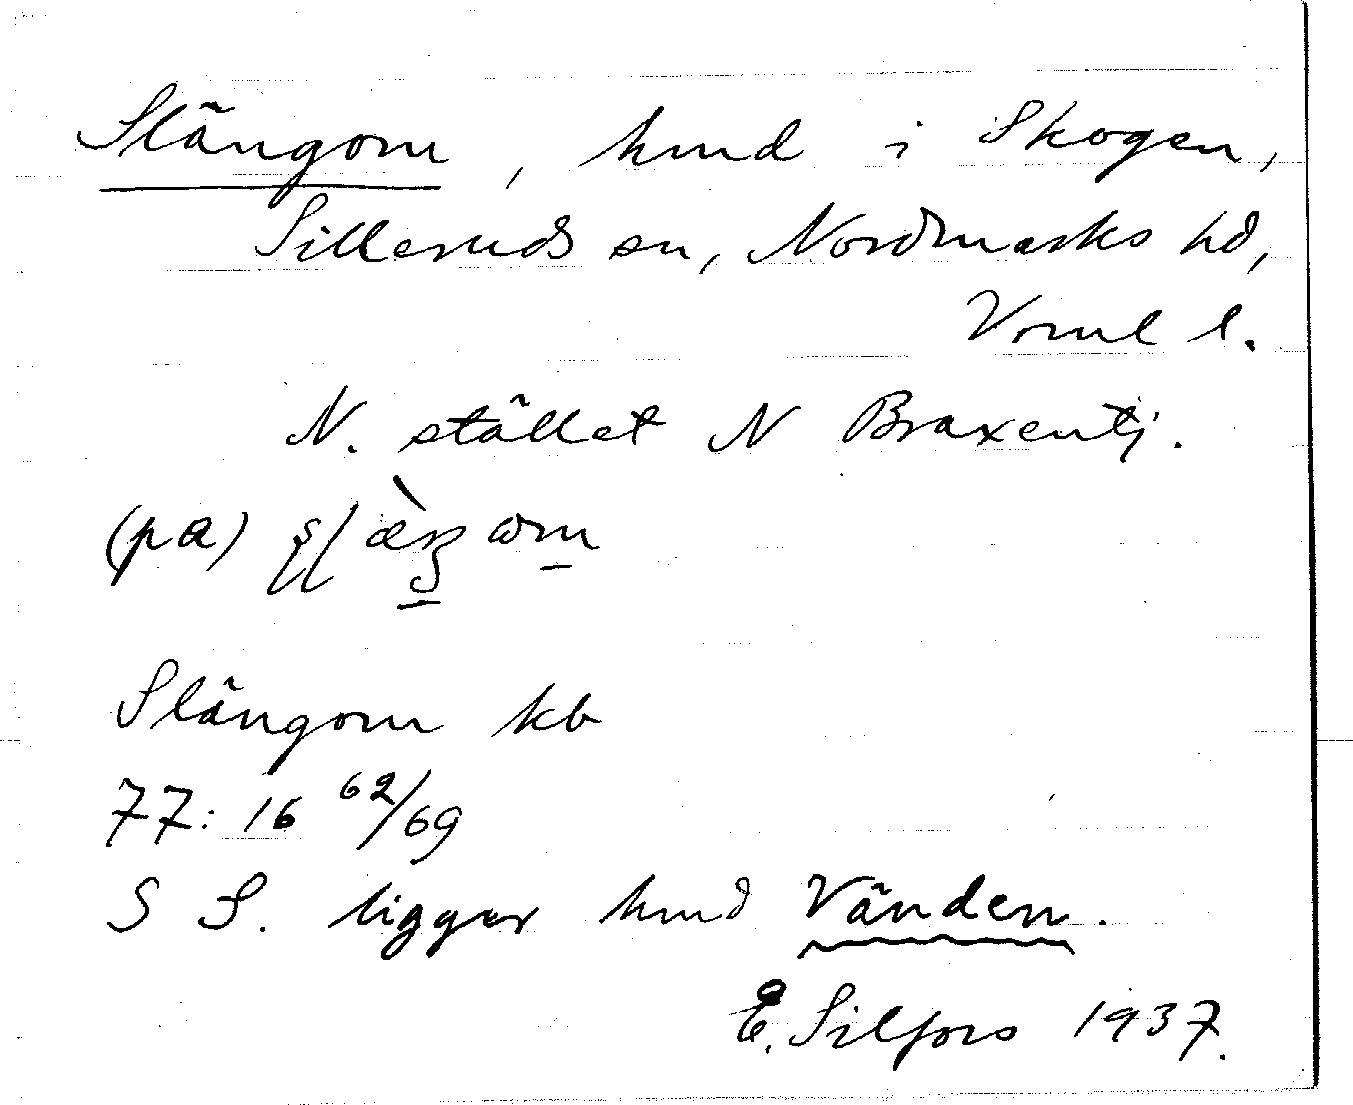 Slängom, hmd i Skogen,
Silleruds sn, Nordmarks hd,
Vrml l.
N. stället N Braxentj.
(pa)
Slängom kb
77: 16 62/69
S S. ligger hmd Vänden.
E. Silfors 1937.